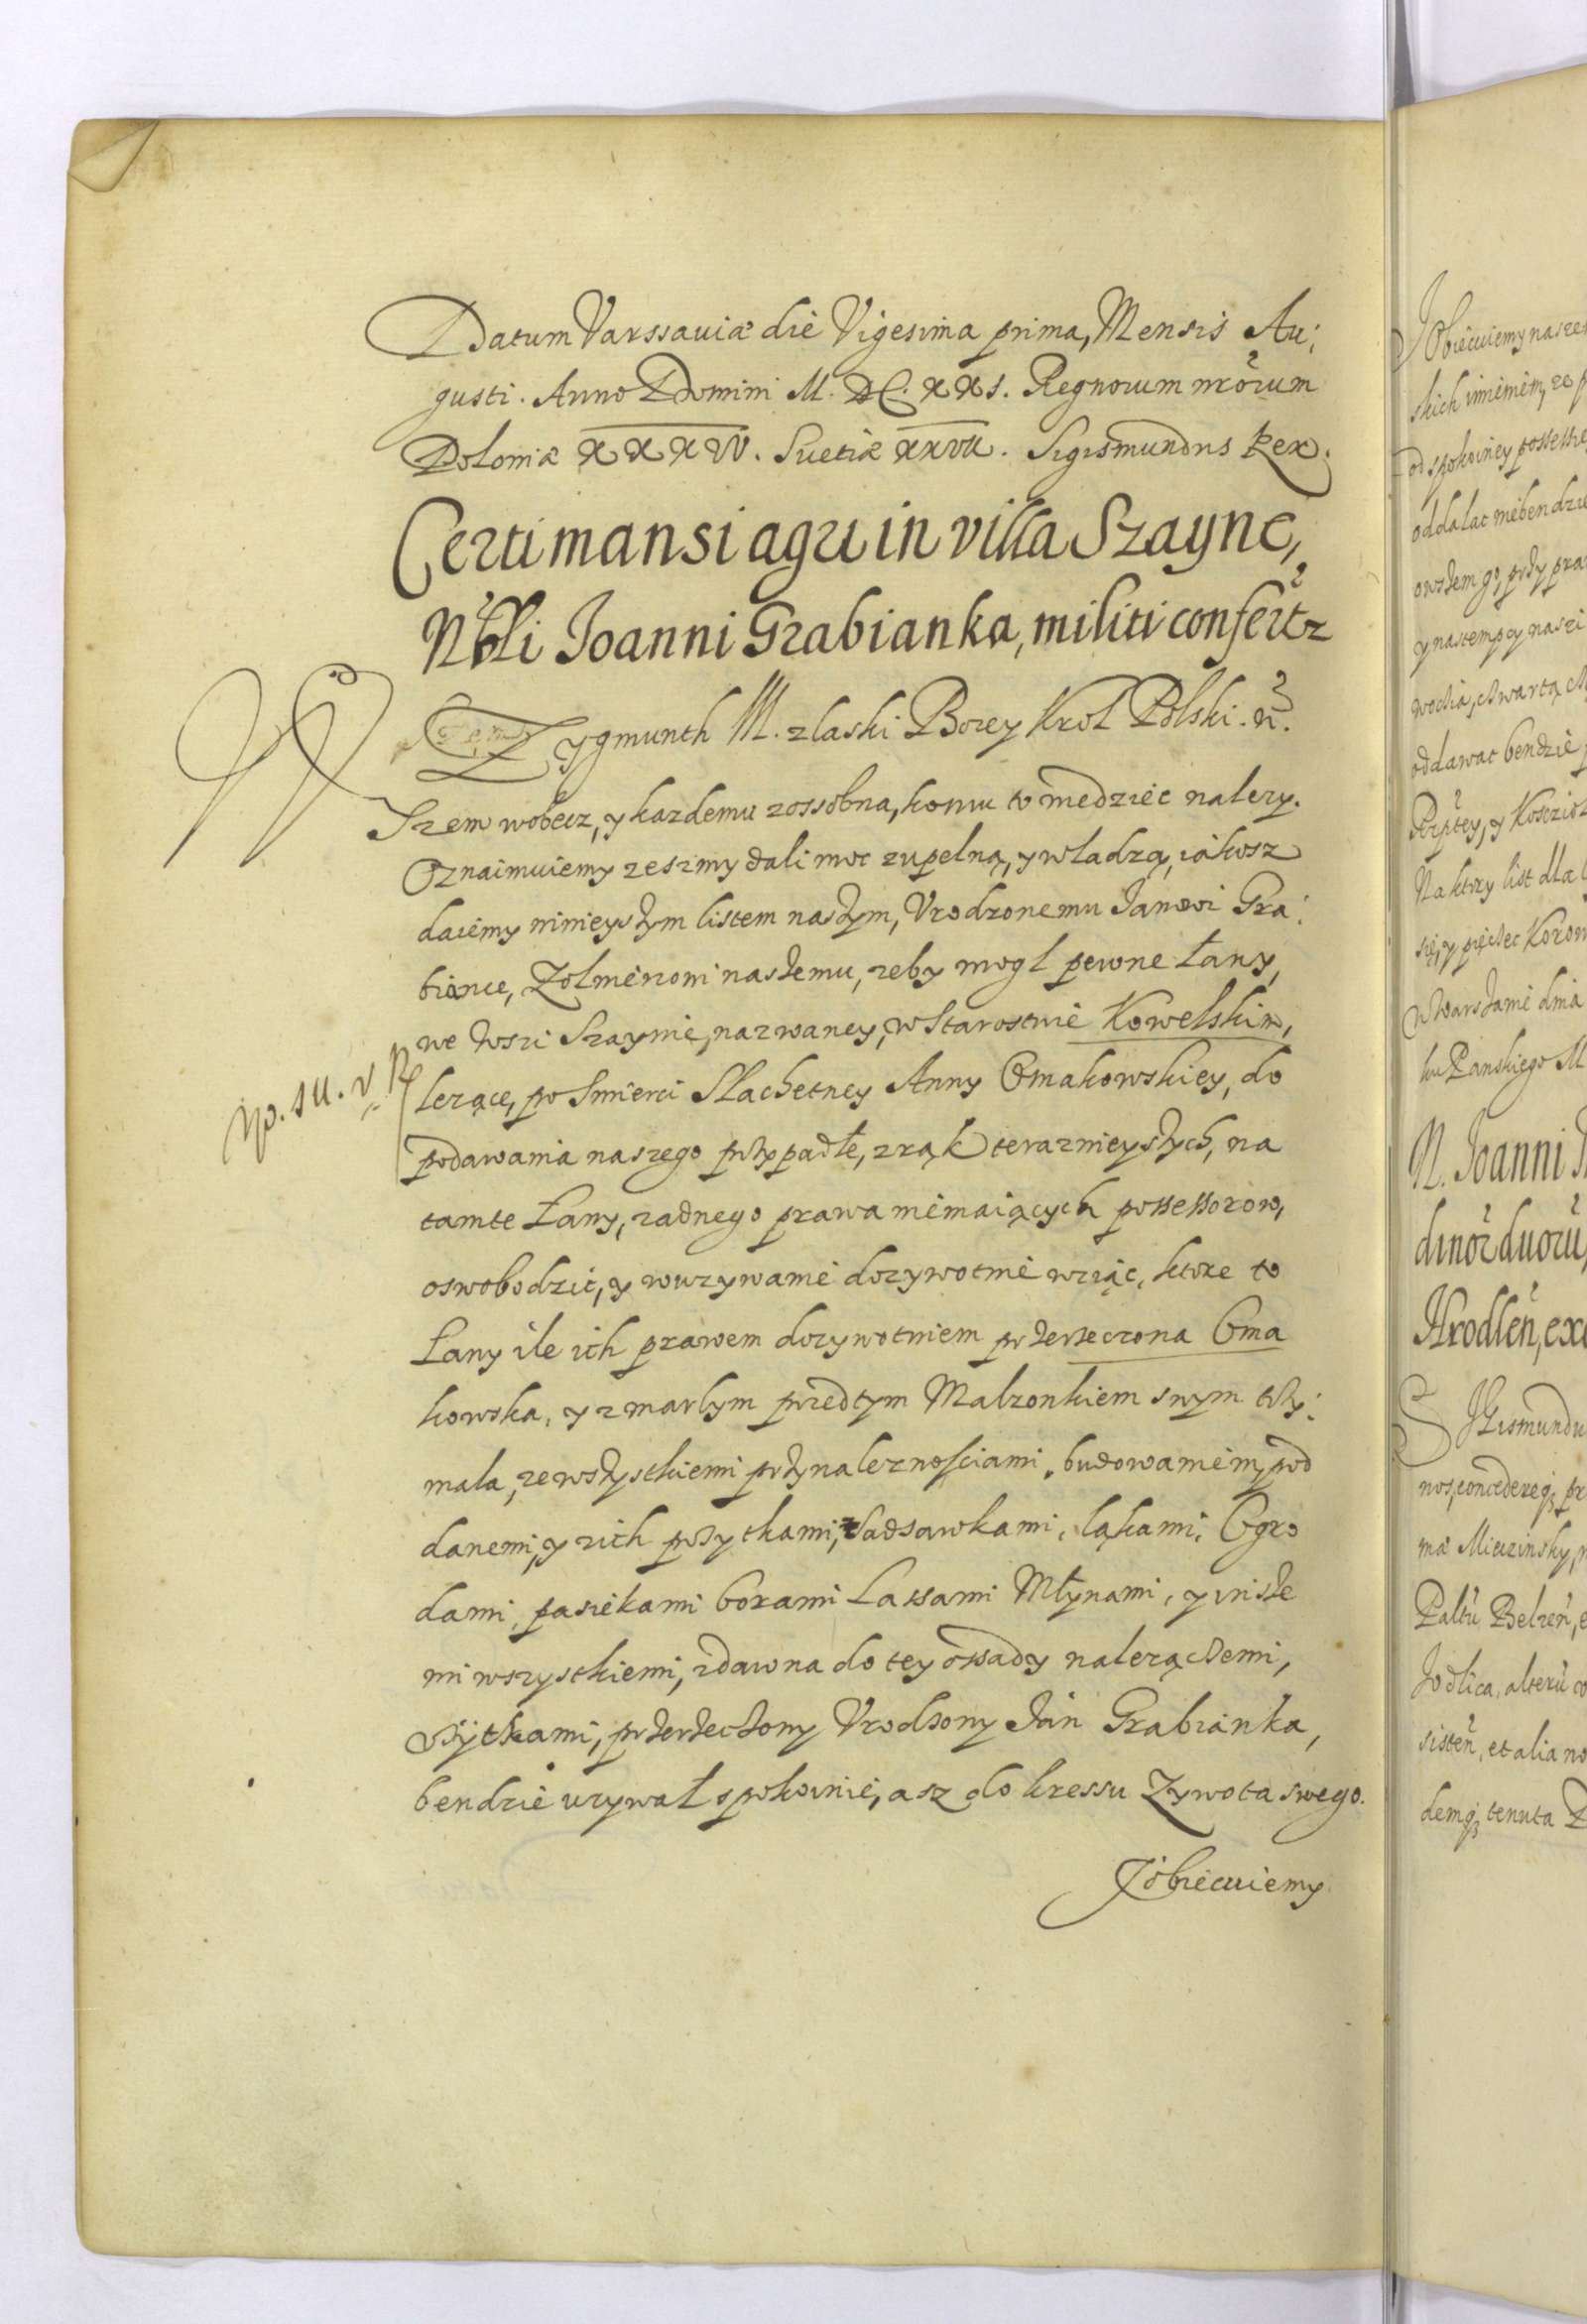 Datum Varssauiæ die Vigesima prima, Mensis Au:
gusti. Anno Domini M. DC. XXI. Regnorum nrorum
Poloniæ XXXIV. Suetiæ XXVII. Sigismundus Rex.
Certi mansi agri in villa Szayne,
Nobli Joanni Grabianka, militi confertr
Zygmunth III. z laski Bozey Krol Polski. n.
W
Szem wobecz, y kazdemu zossobna, komu to wiedziec nalezy.
Oznaimuiemy zeszmy dali moc zupelną, y władzą, iakosz
daiemy ninieyszym listem naszym, Vrodzonemu Janowi Gra:
biance, Zolnierzowi naszemu, zeby mogl pewne Łany,
we wszi Szaynie, nazwaney, w Starostwie Kowelskim,
lezące, po Smierci Slachetney Anny Omakowskiey, do
podawania naszego przypadłe, z rąk teraznieyszych, na
tamte Łany, zadnego prawa niemaiących possessorow,
oswobodzic, y w uzywanie dozywotnie wziąc, ktore to
Łany ile ich prawem dozywotniem przerzeczona Oma
kowska, y z marlym przedtym Malzonkiem swym trzy:
mala, ze wszystkiemi przynaleznosciami, budowaniem, pod
danemi, y z ich pozytkami, Sadzawkami, ląkami, Ogro
dami, pasiekami borami Lassami Młynami, y insze
mi wszystkiemi, zdawna do tey ossady nalezączemi,
pozytkami, przerzeczony Vrodzony Jan Grabianka,
bendzie uzywał spokoinie, asz do kressu Zywota swego.
J obiecuiemy
J Obiecuiemy nasze
skich imieniem, ze p
od spokoiney possessie
oddalac niebendzie
owszem go, przy pra
y nastempcy nasci
oddawac bendzie
Na ktory list dla l
się, y pięczec Koron
w Warszawie dnia
ku Panskiego M
N. Joanni
dinor duoru
Hrodlen, ex
Sigismundu
nos, concedereq pr
ma Miaczinsky,
Paltu Belzen, e
Jodlica, alteru co
sisten, et alia no
demq tenuta